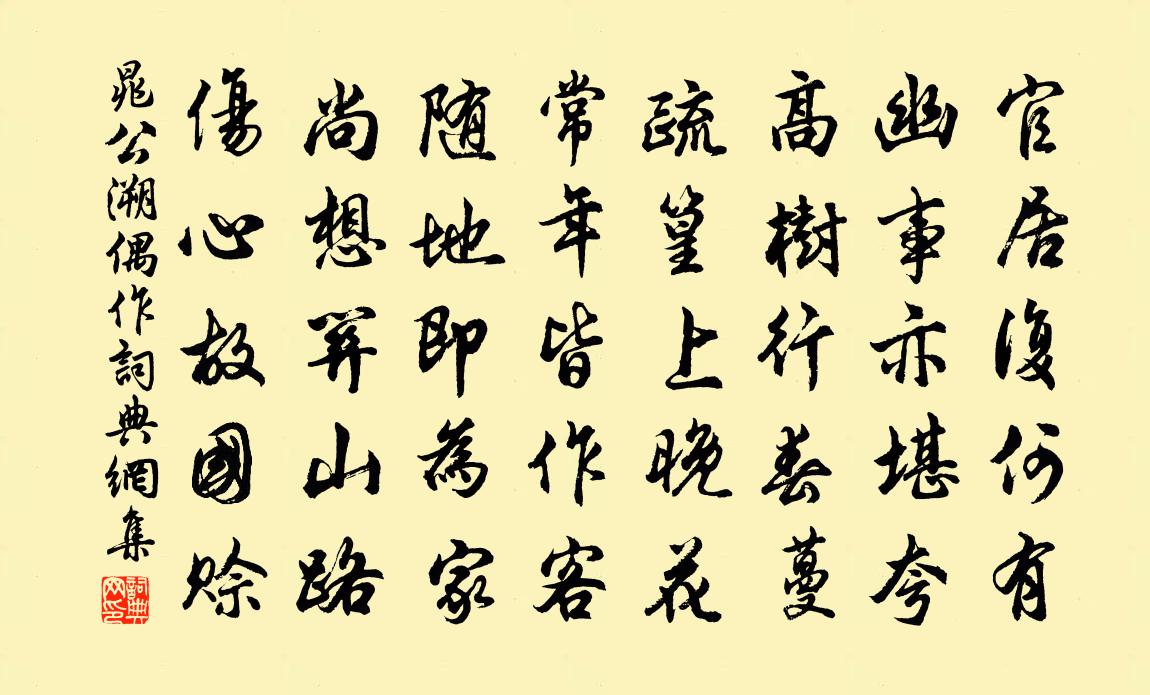 官居復何有
幽事亦堪夸
高樹行春蔓
疏篁上晚花
常年皆作客
随地即為家
尚想關山路
傷心故國賒
晁公溯偶作詞典網集
詞典网印